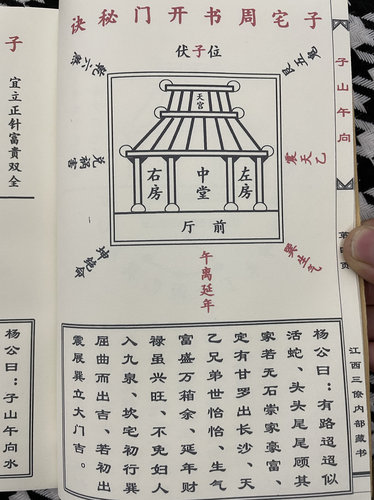 子宅周书开门秘诀
伏子位
艮五鬼
乾六煞
天宫
震天乙
兑祸害
左房
中堂
右房
前厅
巽生气
坤绝命
午离延年
杨公曰：有路迢迢似
活蛇、头头尾尾顾其
家若无石崇家豪富、
定有甘罗出长沙、天
乙兄弟世怡怡、生气
富盛万箱余、延年财
禄虽兴旺、不免妇人
入九泉、坎宅初行巽
屈曲而出吉、若初出
震展巽立大门吉。
子山午向
第
页
江西三僚内部藏书
子
宜立正针富貴双全
杨公曰：子山午向水